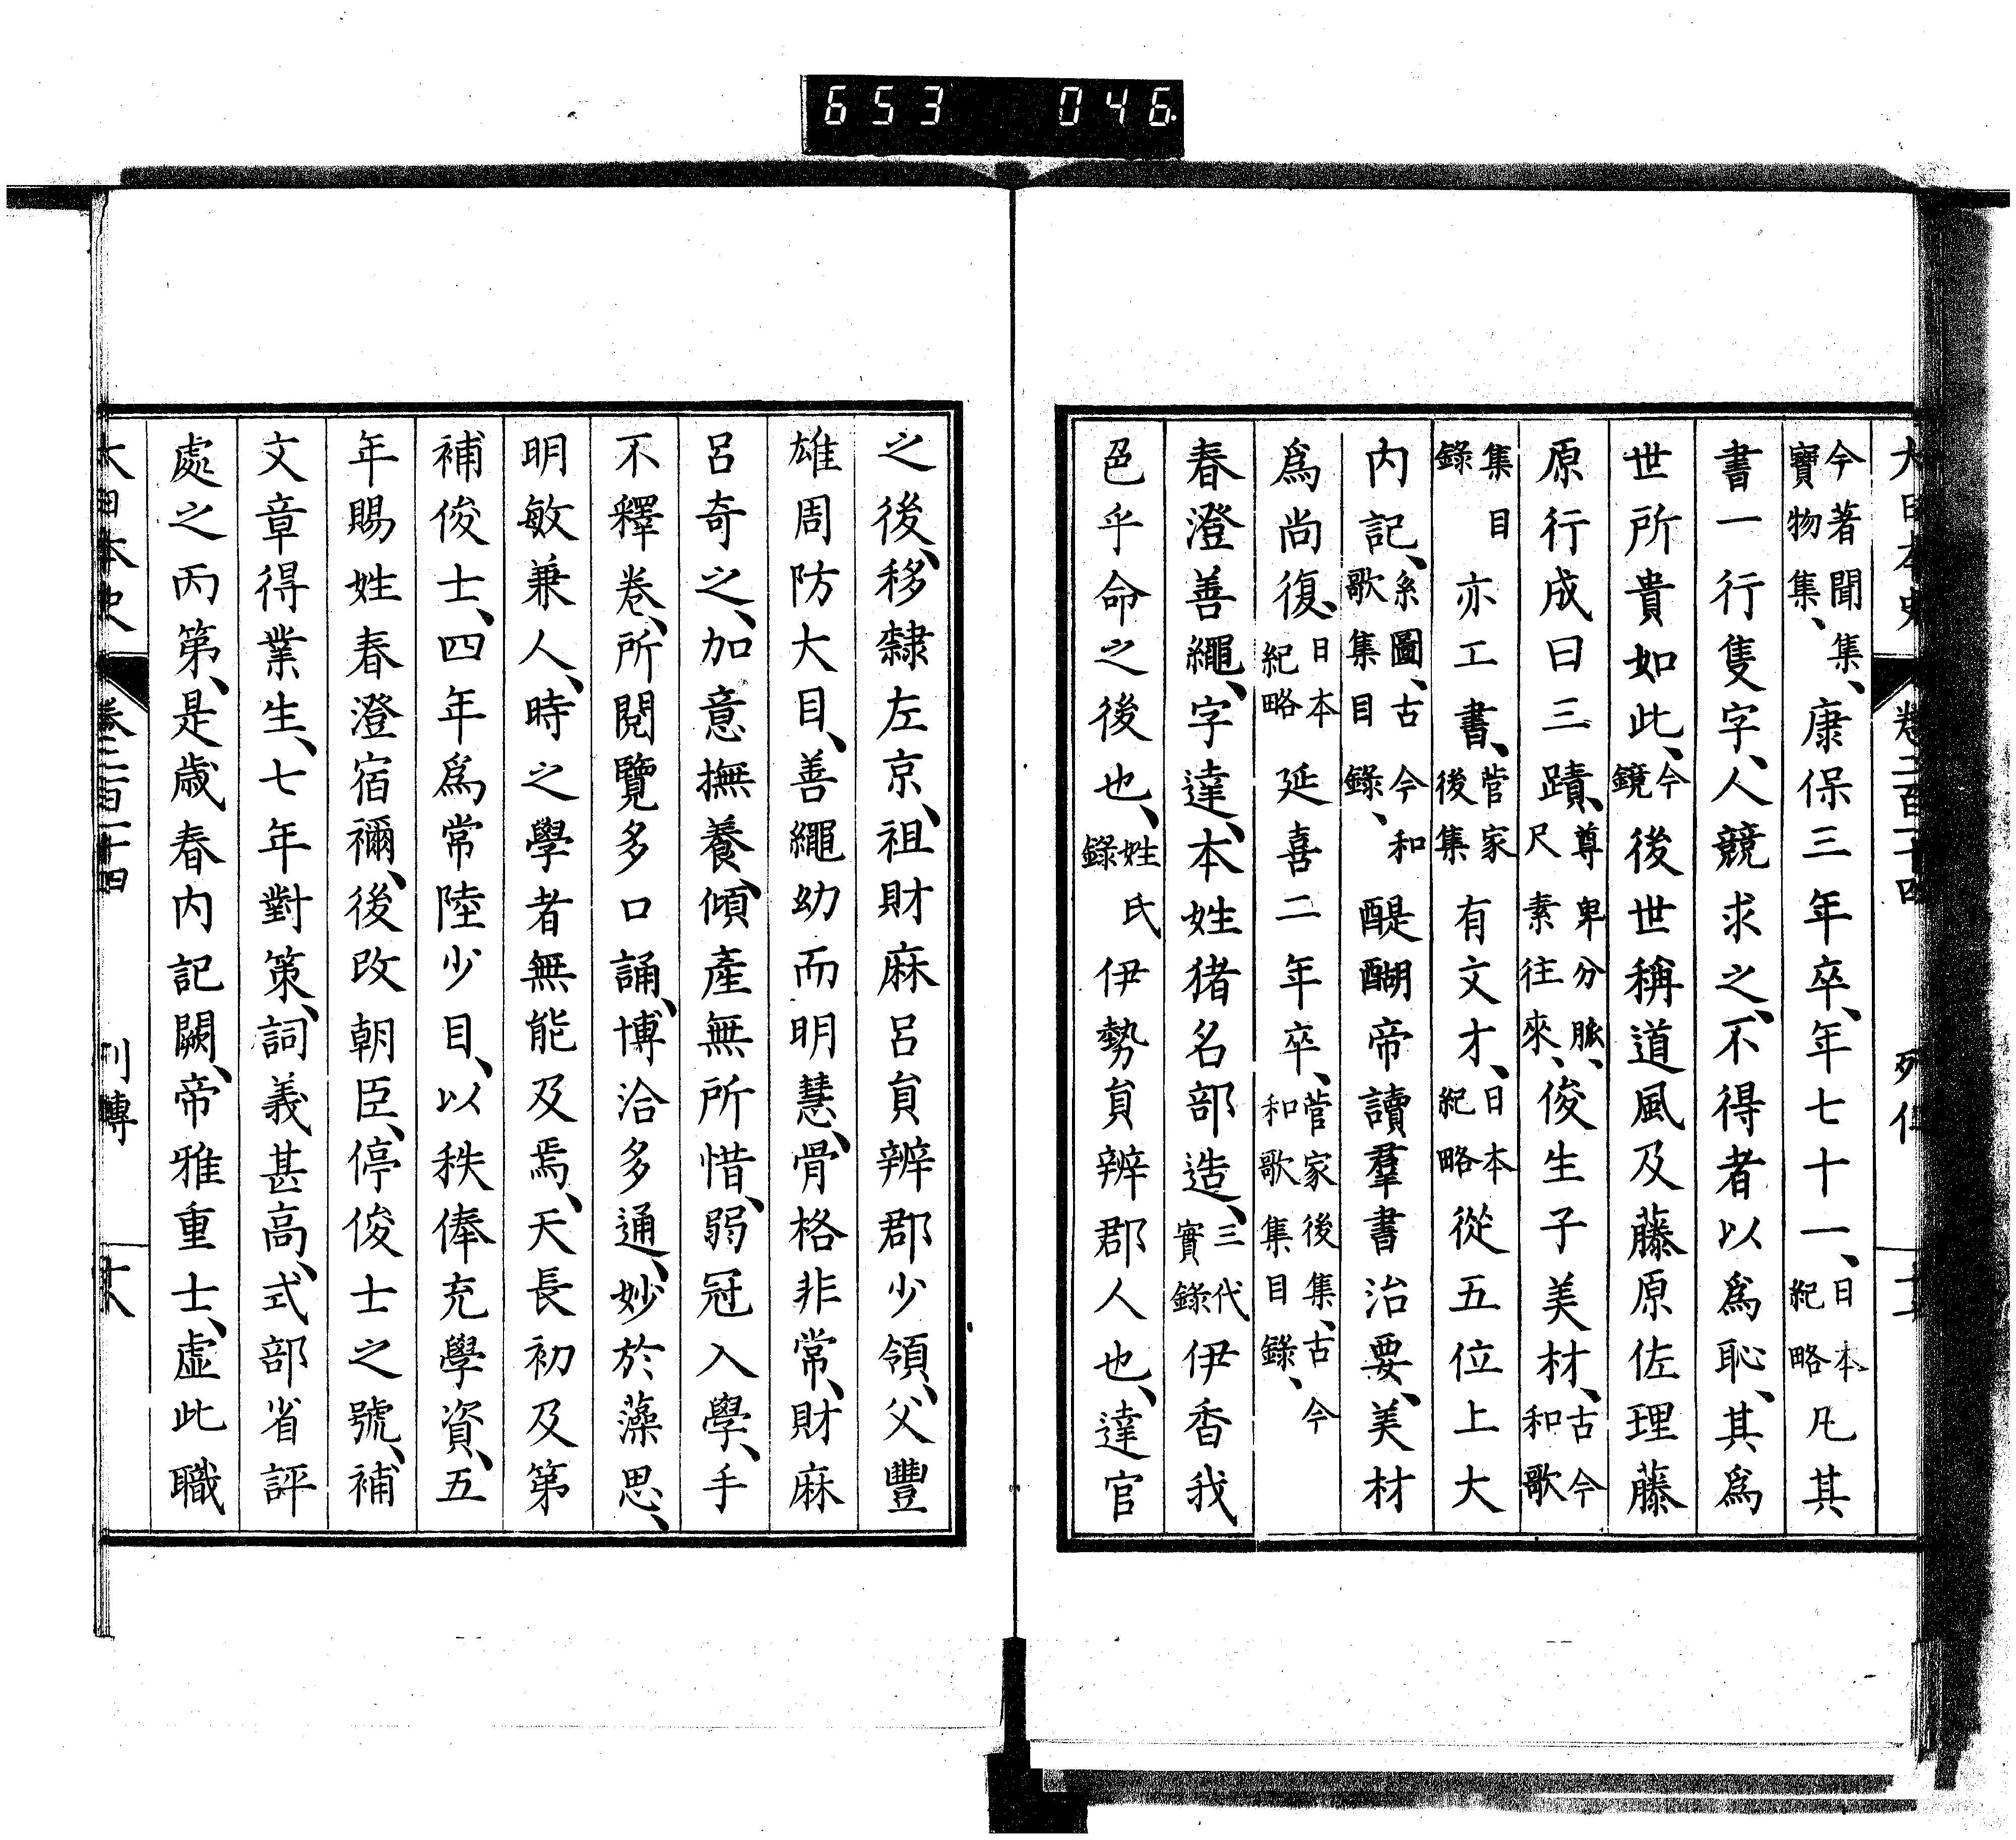 653 046
大日本史 卷二百十四 列傳
今著聞集、寶物集、康保三年卒、年七十一、日本紀略凡其
書一行隻字、人競求之、不得者以爲恥、其爲
世所貴如此、今鏡後世稱道風及藤原佐理藤
原行成曰三蹟、尊卑分脈、尺素往來、俊生子美材、古今和歌
集目錄亦工書、菅家後集有文才、日本紀略從五位上大
内記、系圖、古今和歌集目錄、醍醐帝讀羣書治要、美材
爲尚復、日本紀略延喜二年卒、菅家後集、古今和歌集目錄、
春澄善繩、字達、本姓猪名部造、三代實錄伊香我
色乎命之後也、姓氏錄伊勢員辨郡人也、達官
之後、移隸左京、祖財麻呂員辨郡少領、父豐
雄周防大目、善繩幼而明慧、骨格非常、財麻
呂奇之、加意撫養、傾產無所惜、弱冠入學、手
不釋卷、所閱覽多口誦、博洽多通、妙於藻思、
明敏兼人、時之學者無能及焉、天長初及第
補俊士、四年爲常陸少目、以秩俸充學資、五
年賜姓春澄宿禰、後改朝臣、停俊士之號、補
文章得業生、七年對策、詞義甚高、式部省評
處之丙第、是歲春内記闕、帝雅重士、虛此職
大日本史 卷二百十四 列傳